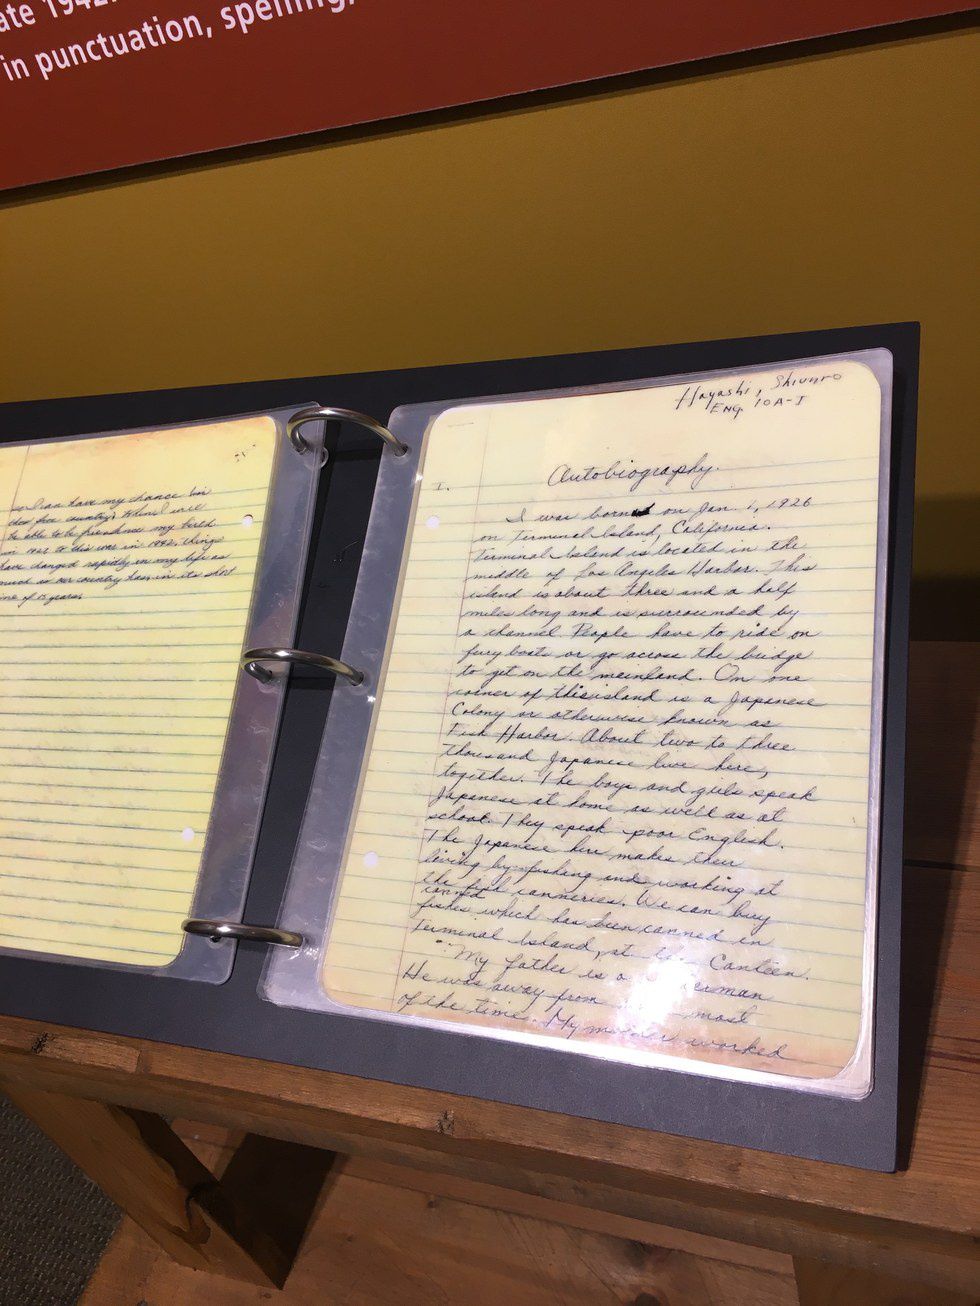 ate 1942.
in punctuation, spelling,
so I can have my chance in
free country? When I will
be able to be my birth
in 1921 to this war in 1942, things
have changed rapidly in my life as
much as our country has in its short
time of 15 years.
Hayashi, Shiunro
ENG 10A-I
Autobiography.
I.
I was born on Jan. 1, 1926
on Terminal Island, California.
Terminal Island is located in the
middle of Los Angeles Harbor. This
island is about three and a half
miles long and is surrounded by
a channel People have to ride on
fury boats or go across the bridge
to get on the meinland. On one
corner of this island is a Japanese
Colony or otherwise known as
Fish Harbor. About two to three
thousand Japanese live here,
together. The boys and girls speak
Japanese at home as well as at
school. They speak poor English.
The Japanese here makes their
living by fishing and working at
the fish canneries. We can buy
canned
fishes which has been canned in
Terminal Island, at the Canteen.
My father is a
He was away from most
of the time. My worked